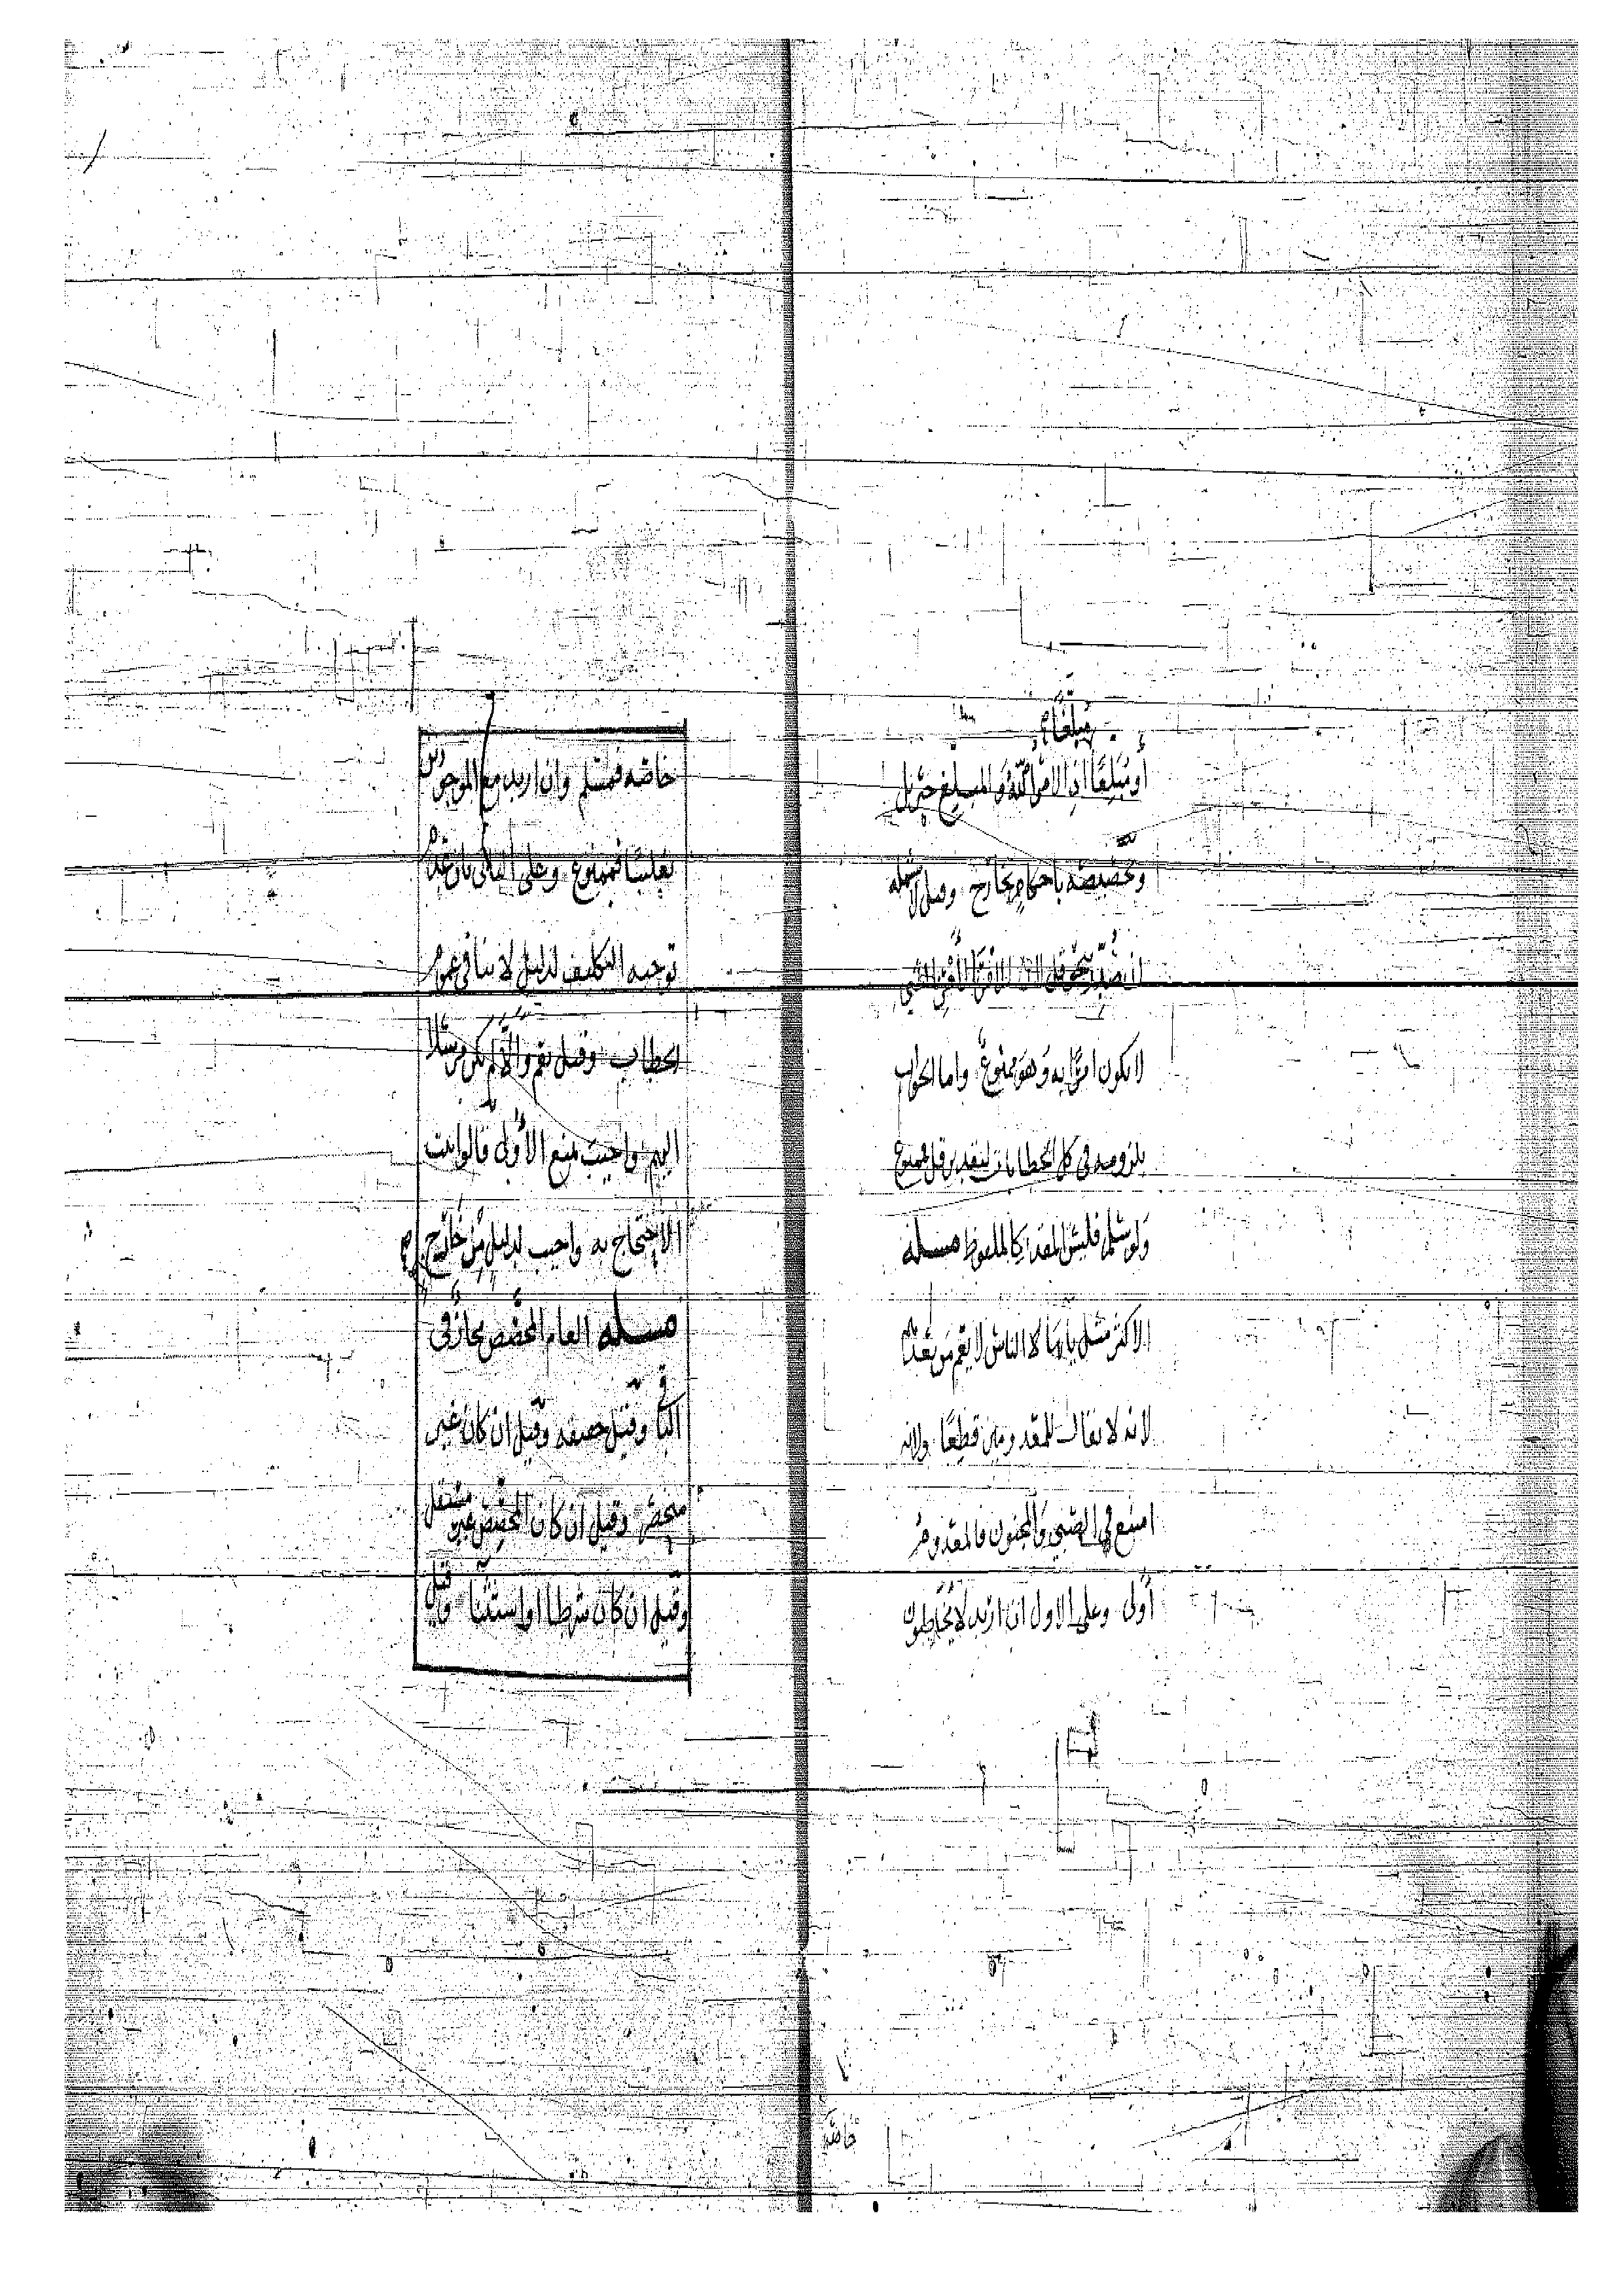 مبلغا
أو مبلغا اذ الامر الله والمبلغ جبريل
وتخصيصه باحكام بخارج وقيل لا يشمله
ان صدر بنحو قل لان الامر بالامر بالشي
لا يكون امرا به وهو ممنوع واما الجواب
بلزومه في كل الخطابات لتقدير قل فممنوع
ولو سلم فليس المقدر كالملفوظ مسله
الاكثر مثل يا ايها الناس لا يعم من بعدهم
لانه لا يقال للمعدومين قطعا ولانه
امتنع في الصبي والمجنون فالمعدوم
أولى وعلى الاول ان اريد لا يخاطبون
خاصه
خاصه فمسلم وان اريد مع الموجودين
تغليبا فممنوع وعلى الثاني بان عدم
توجيه التكليف لدليل لا ينافي عموم
الخطاب وقيل يعم والا لم يكن مرسلا
اليهم واجيب بمنع الأولى قالوا ثبت
الاحتجاج به واجيب بدليل من خارج
مسله العام المخصص مجاز في
الباقي وقيل حقيقه وقيل ان كان غير
منحصر وقيل ان كان المخصص غير مستقل
وقيل ان كان شرطا او استثنآ وقيل